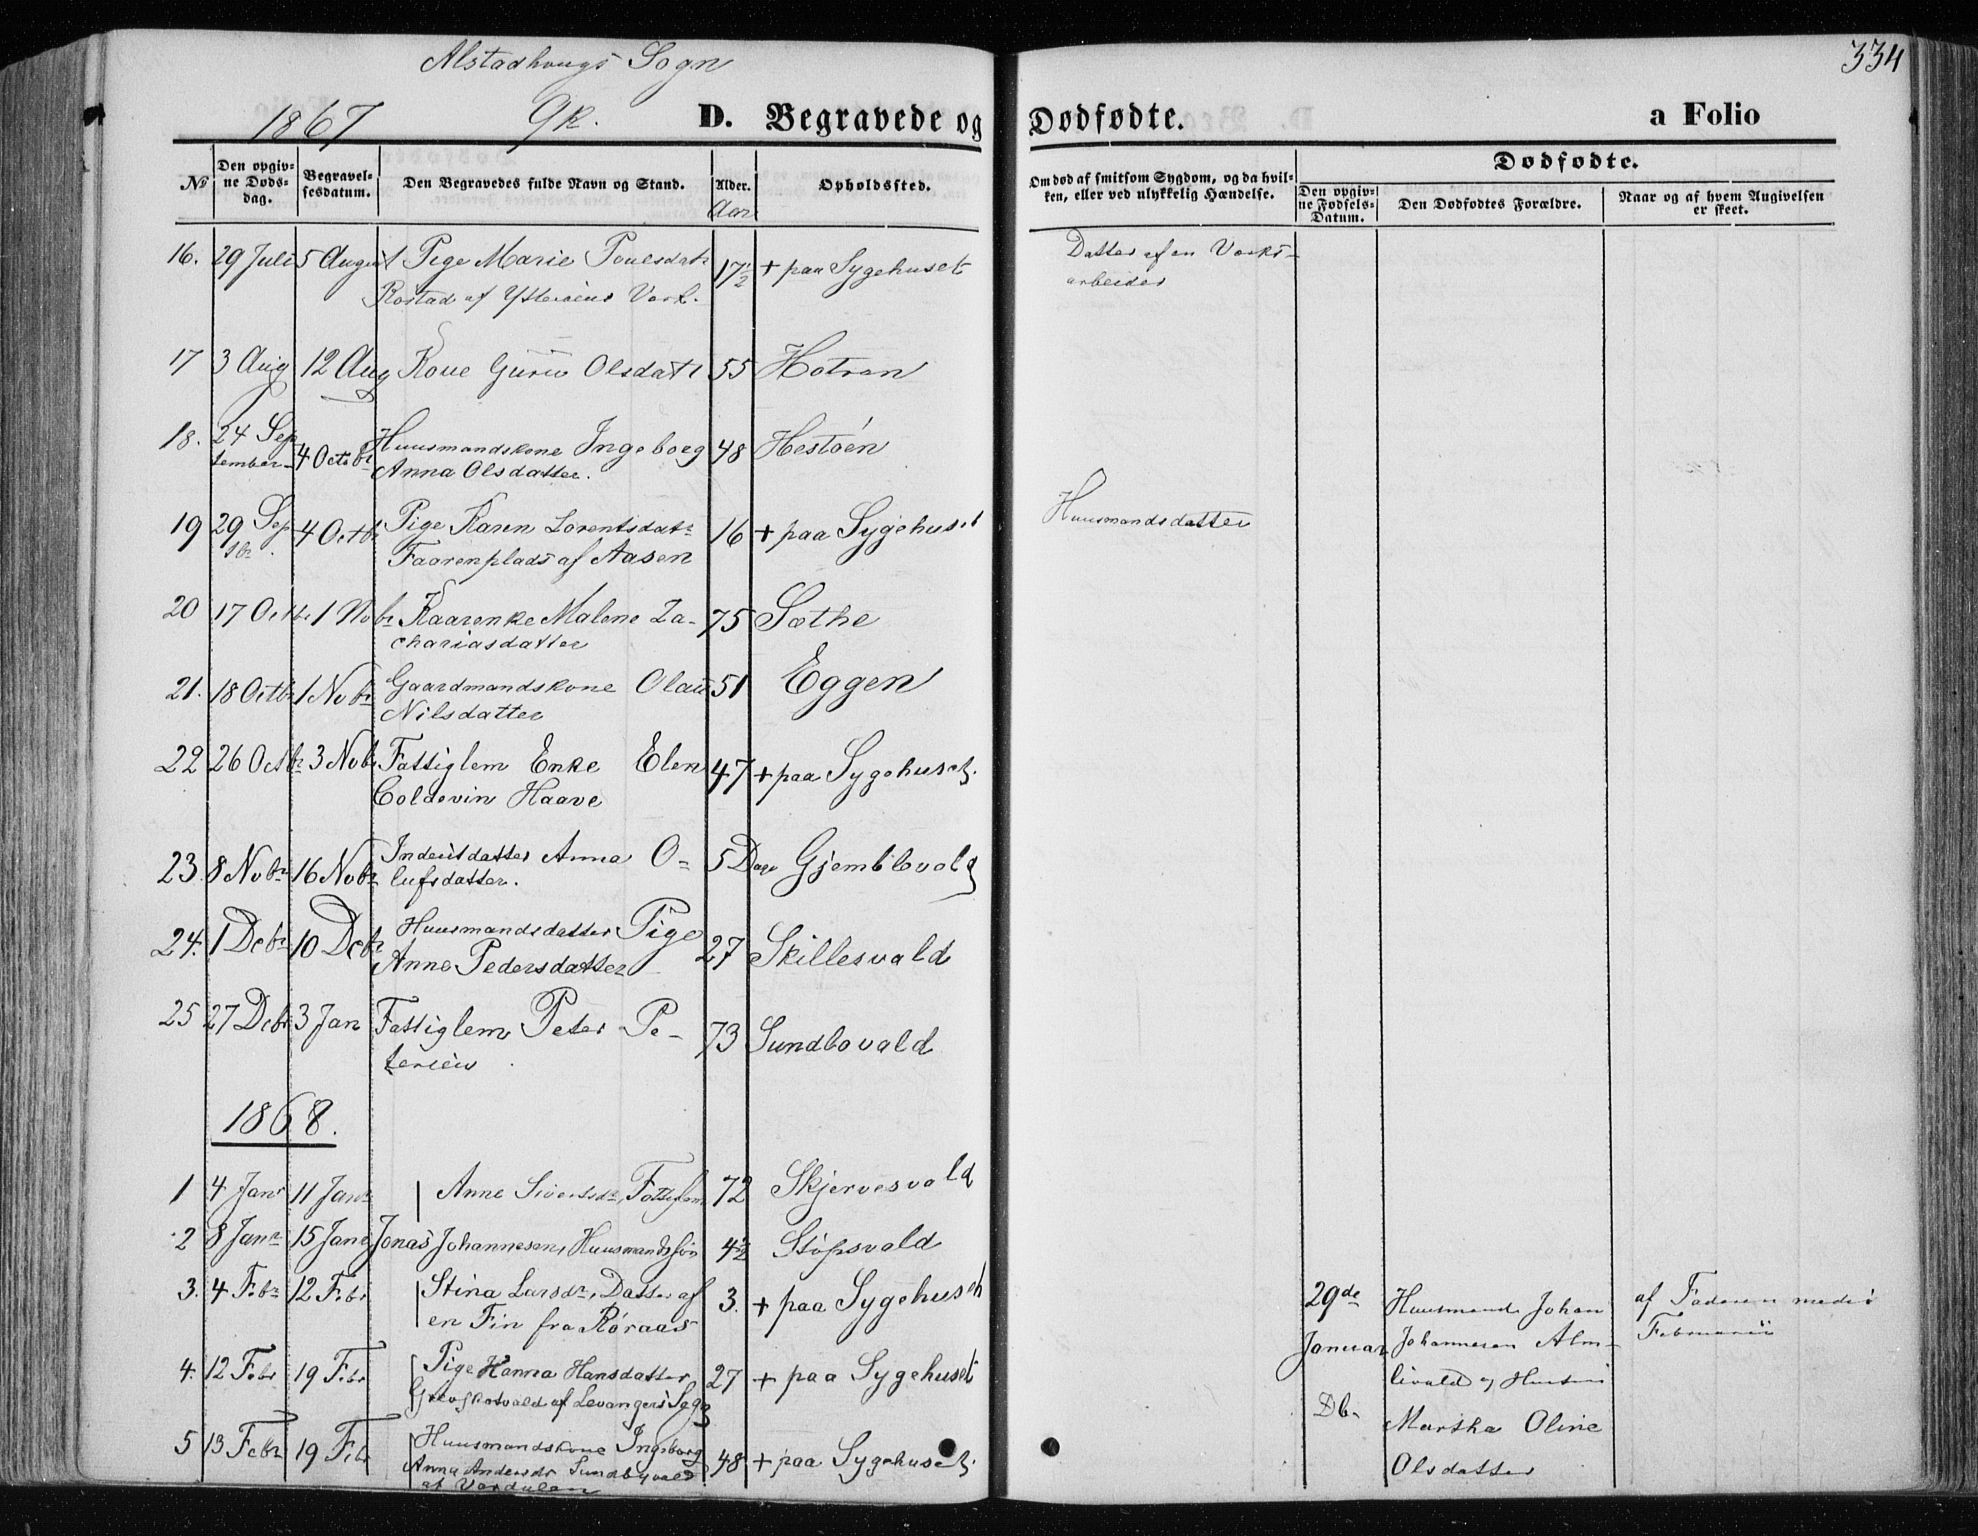 Alstadhougs Sogn
334
1867 Qk. D. Begravede og Dødfødte. a Folio
Dødfødte.
№ Den opgivne Døds-dag. Begravelsesdatum. Den Begravedes fulde Navn og Stand. Alder. Opholdssted. Om død af smitsom Sygdom, og da hvilken, eller ved ulykkelig Hændelse. Den opgivne Fødsels-Datum. Den Dødfødtes Forældre. Naar og af hvem Angivelsen er skeet.
Aar
16. 29 Juli 5 August Pige Marie Pouelsdatr 17½ + paa Sygehuset Datter af en Verks-
Rostad af Ytterøens Verk. arbeider
17 3 Aug 12 Aug Kone Guru Olsdatr 55 Hotran
18. 24 Sep- 4 Octobr Huusmandskone Ingeborg 48 Hestøen
tember Anna Olsdatter.
19 29 Sep 4 Octbr Pige Karen Lorentsdatr 16 + paa Sygehuset Huusmandsdatter
tbr. Faarenplads af Aasen
20 17 Octbr 1 Nobr Kaarenke Malene Za- 75 Sæthe
chariasdatter
21. 18 Octbr 1 Nobr Gaardmandskone Olau 51 Eggen
Nilsdatter
22 26 Octbr 3 Nobr Fattiglem Enke Elen 47 + paa Sygehuset.
Coldevin Haave
23 8 Nobr 16 Nobr Inderstdatter Anna O- 5 Dage Gjemblevald
lufsdatter.
24. 1 Debr 10 Debr Huusmandsdatter Pige 27 Skillesvald
Anne Pedersdatter
25 27 Debr 3 Jan Fattiglem Peter Pe- 73 Sundbovald
tersen
1868.
1 4 Janr 11 Janr Anne Sivertsdr, Fattiglem 72 Skjervesvald
2 8 Janr 15 Janr Jonas Johannesen, Huusmandssøn 4½ Stöpsvald
3. 4 Febr 12 Febr Stina Larsdr, Datter af 3. + paa Sygehuset
en Fin fra Röraas
4. 12 Febr 19 Febr Pige Hanna Hansdatter, 27 + paa Sygehuset
af Levangers Sogn
5 13 Febr 19 Febr Huusmandskone Ingeborg 48 + paa Sygehuset.
Anna Andersdr Sundbyvald
af Værdalen
29de Huusmand Johan af Faderen medio
Januar Johannesen Alm- Februarii
livald og Hustru
Db. Martha Oline
Olsdatter